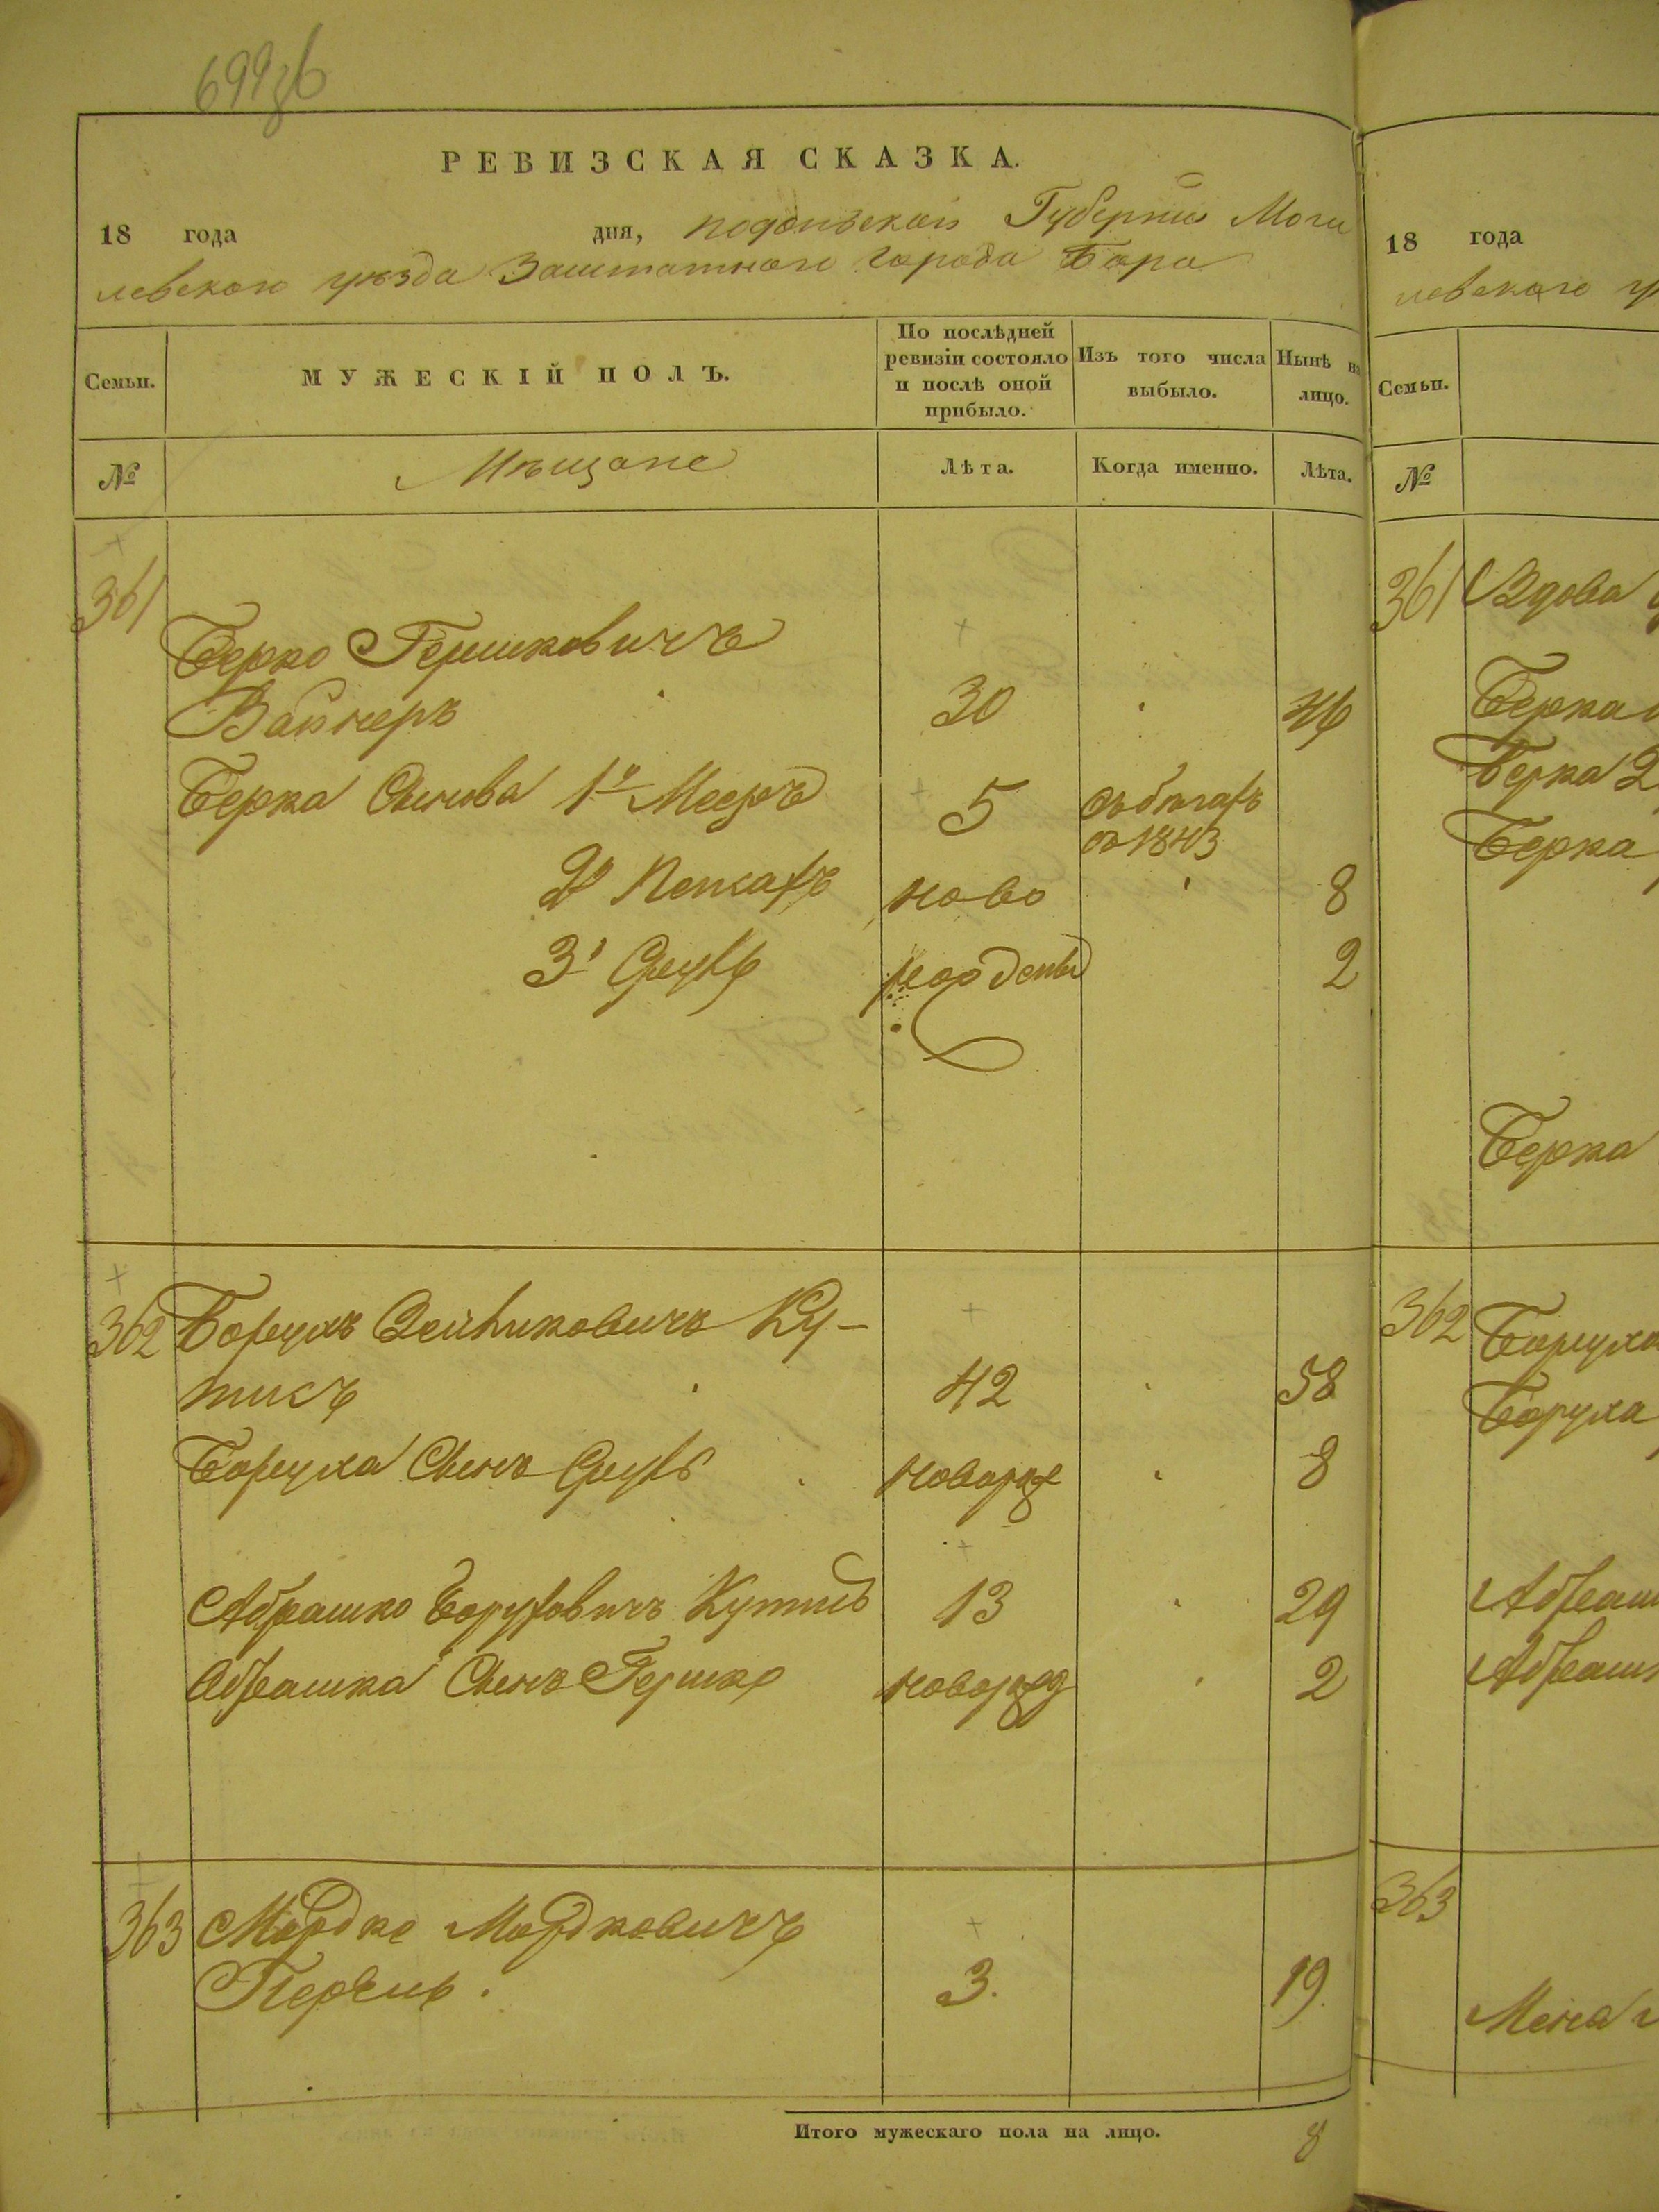 699зб
РЕВИЗСКАЯ СКАЗКА.
18 года дня, подольской Губерніи Моги
левского уѣзда Заштатного города Бара
Семьи. МУЖЕСКІЙ ПОЛЪ. По послѣдней ревизіи состояло и послѣ оной прибыло. Изъ того числа выбыло. Нынѣ на лицо.
№ Мѣщане Лѣта. Когда именно. Лѣта.
361
Берко Гершковичъ
Вайнеръ 30 46
Берка Сынова 1й Мееръ 5 въ бѣгахъ
съ 1843
2й Пинхасъ ново 8
3й Сруль рожденны 2
362 Борухъ Зейликовичъ Ку-
тисъ 42 58
Боруха Сынъ Сруль новорож 8
Абрашко Боруховичъ Кутисъ 13 29
Абрашка Сынъ Гершко новорожд 2
363 Мордко Мордковичъ
3. 19.
Итого мужескаго пола на лицо. 8
18 года
левского у
Семьи.
№
361 Вдова
Берка
Берка 2
Берка
Берка
362 Боруха
Боруха
Абраш
Абраш
363